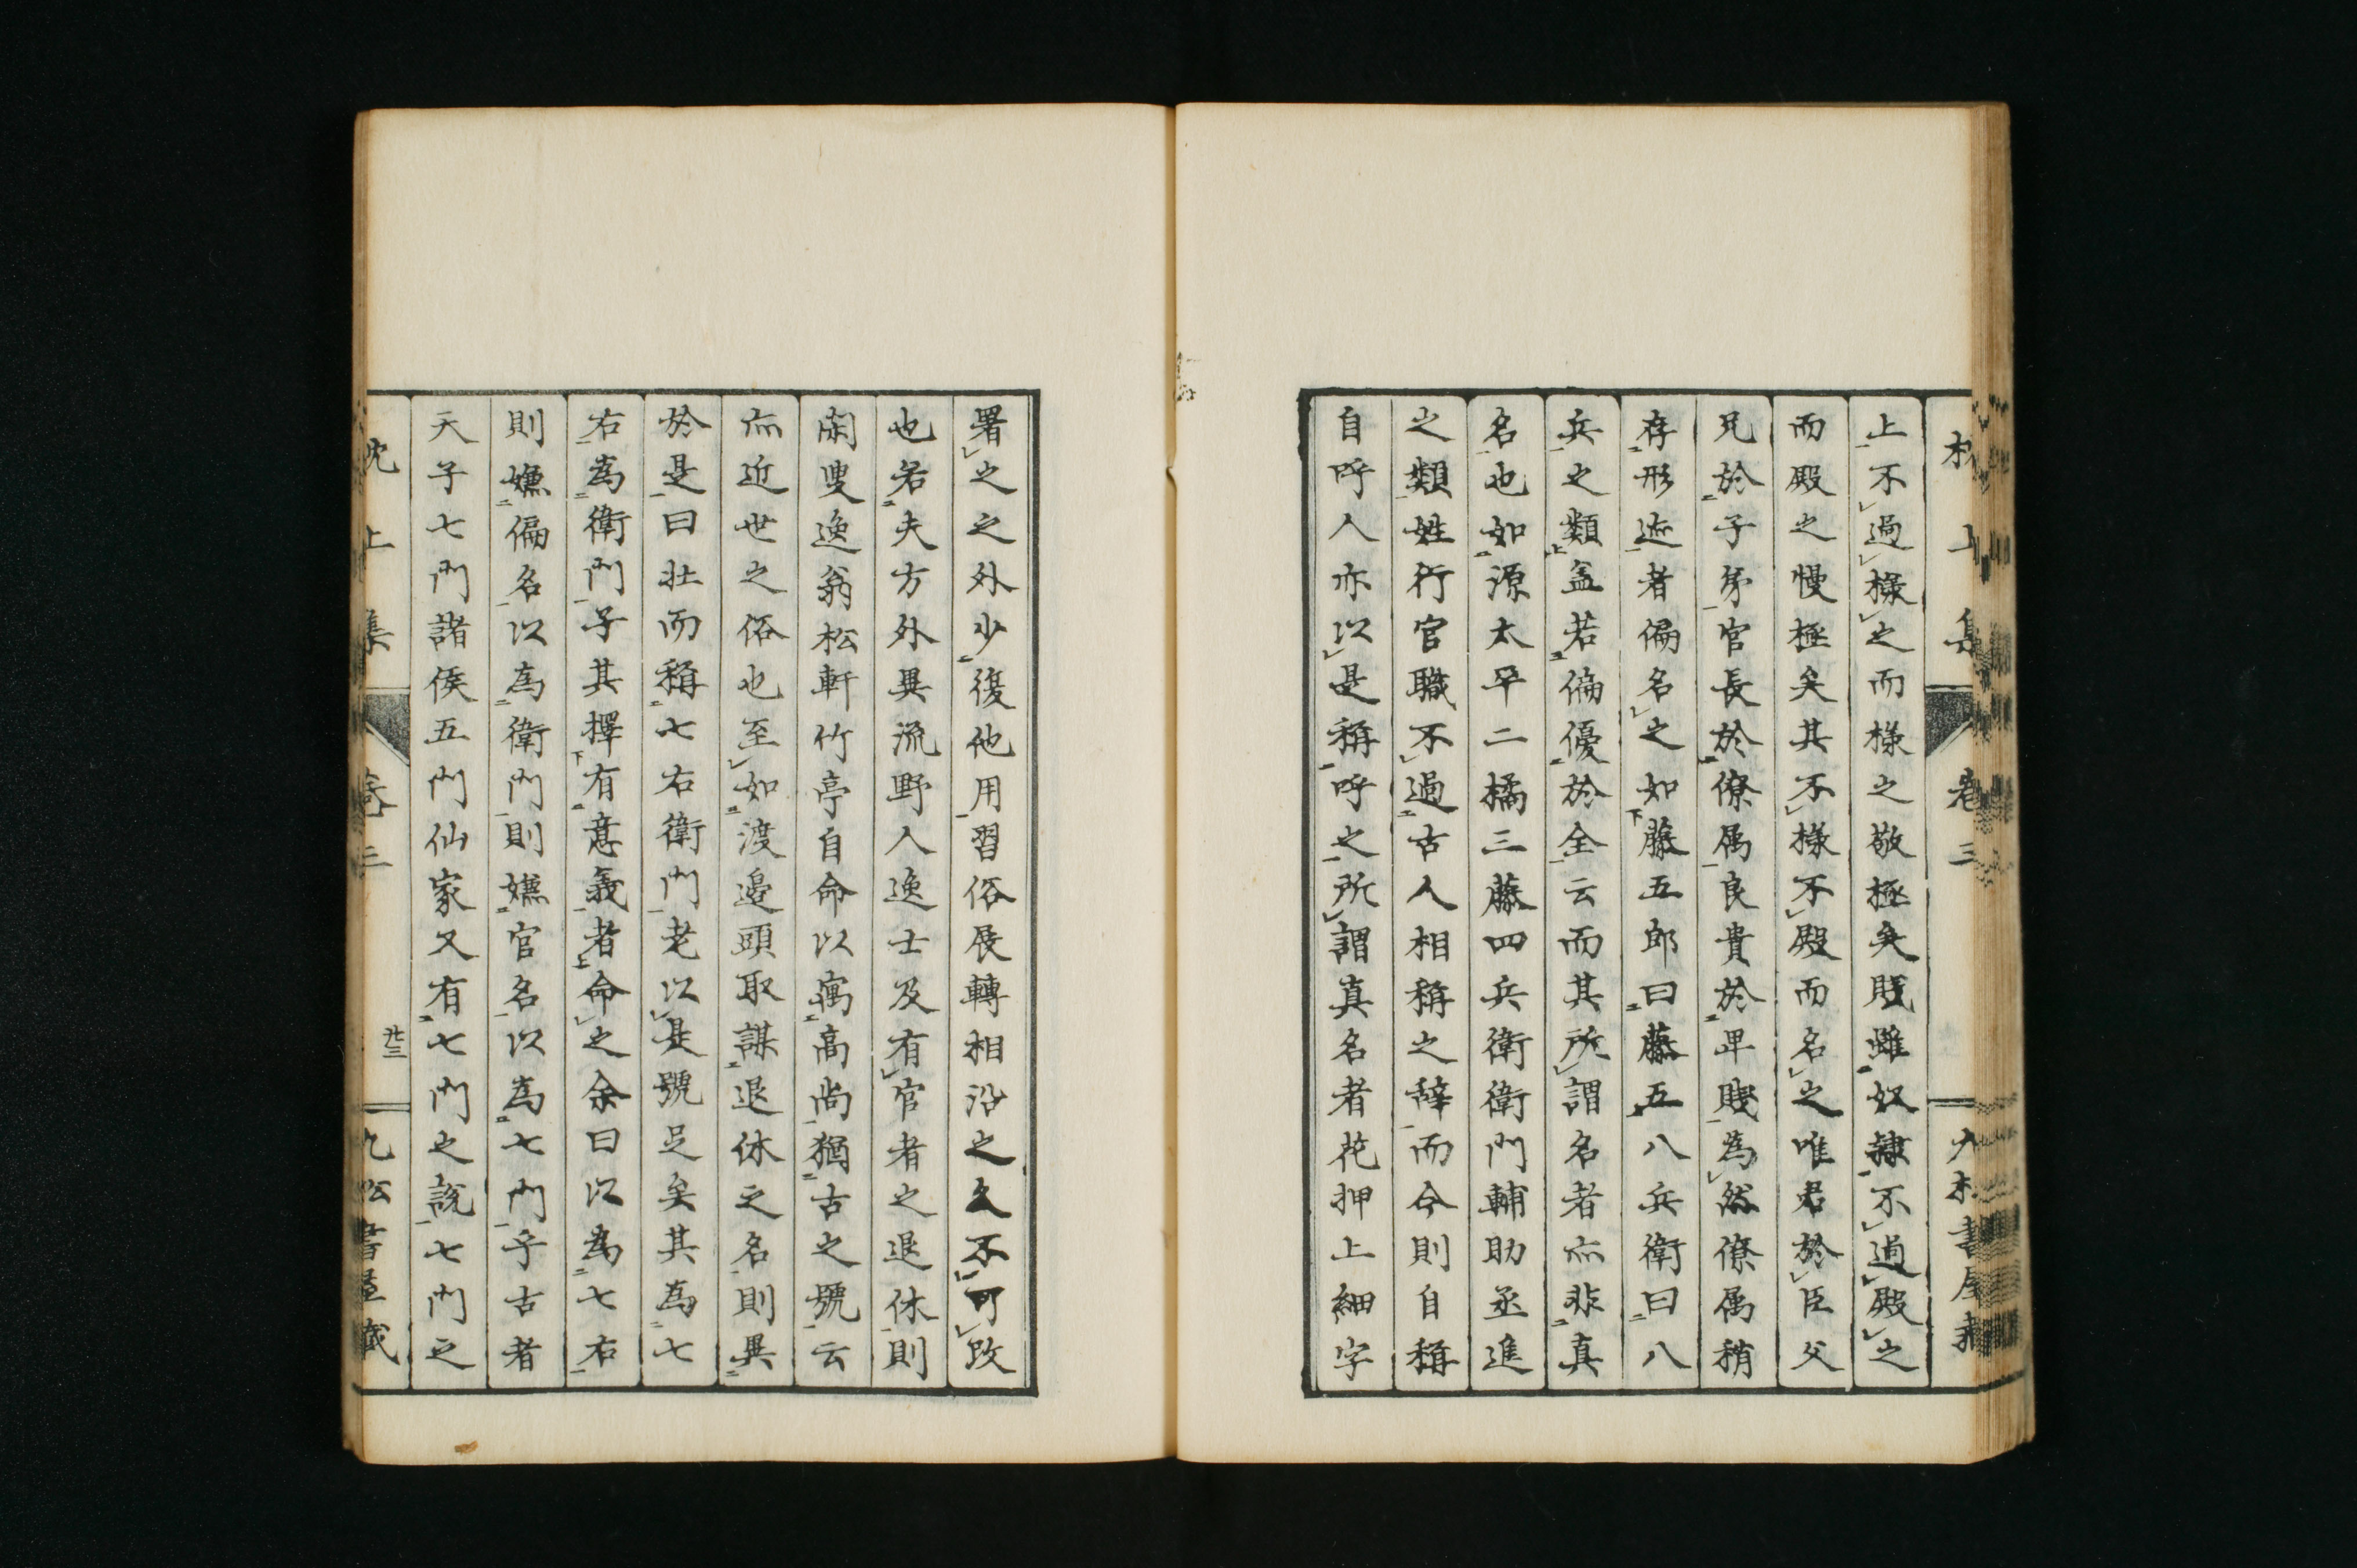 上不過様之而様之敬極矣賎雖奴隷不過殿之
而殿之慢極矣其不様不殿而名之唯君於臣父
兄於子弟官長於僚属良貴於卑賎為然僚属稍
存形迹者偏名之如藤五郎曰藤五八兵衛曰八
兵之類盖若偏優於全云而其所謂名者亦非真
名也如源太平二橘三藤四兵衛衛門輔助丞進
之類姓行官職不過古人相稱之辞而今則自稱
自呼人亦以是稱呼之所謂真名者花押上細字
署之之外少復他用習俗展轉相沿之久不可改
也若夫方外異流野人逸士及有官者之退休則
閑叟逸翁松軒竹亭自命以寓高尚猶古之號云
亦近世之俗也至如渡邉頭取謀退休之名則異
於是曰壮而稱七右衛門老以是號足矣其為七
右為衛門子其擇有意義者命之余曰以為七右
則嫌偏名以為衛門則嫌官名以為七門乎古者
天子七門諸侯五門仙家又有七門之説七門之
枕上集
卷三
廿三
九松書屋藏